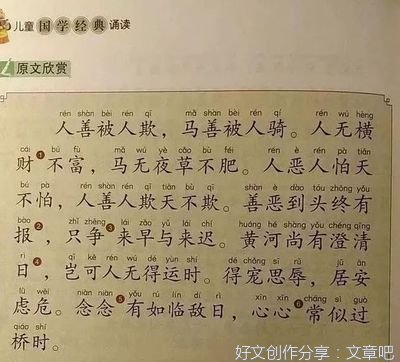 儿童国学经典诵读
原文欣赏
rén shàn bèi rén qī mǎ shàn bèi rén qí rén wú hèng
人善被人欺，马善被人骑。人无横
cái bú fù mǎ wú yè cǎo bù féi rén è rén pà tiān
财❶不富，马无夜草不肥。人恶人怕天
bú pà rén shàn rén qī tiān bù qī shàn è dào tóu zhōng yǒu
不怕，人善人欺天不欺。善恶到头终有
bào zhǐ zhēng lái zǎo yǔ lái chí huáng hé shàng yǒu chéng qīng
报❷，只争❸来早与来迟。黄河尚有澄清
rì qǐ kě rén wú dé yùn shí dé chǒng sī rǔ jū ān
日❹，岂可人无得运时。得宠思辱，居安
lǜ wēi niàn niàn yǒu rú lín dí rì xīn xīn cháng sì guò
虑危。念念❺有如临敌日，心心❻常似过
qiáo shí
桥时。
好文创作分享：文章吧